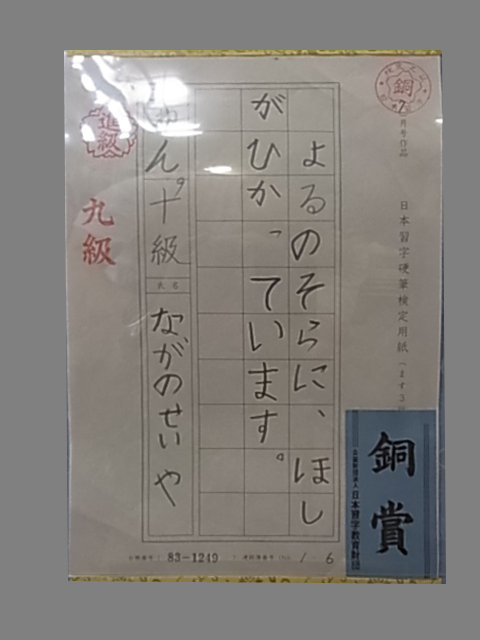 銅
7
月号作品
日本習字硬筆検定用紙(ます3
よるのそらに、ほし
がひか
っています。
進級
九級
十級
氏名
ながのせいや
銅賞
公益財団法人 日本習字教育財団
83-1249
1-6